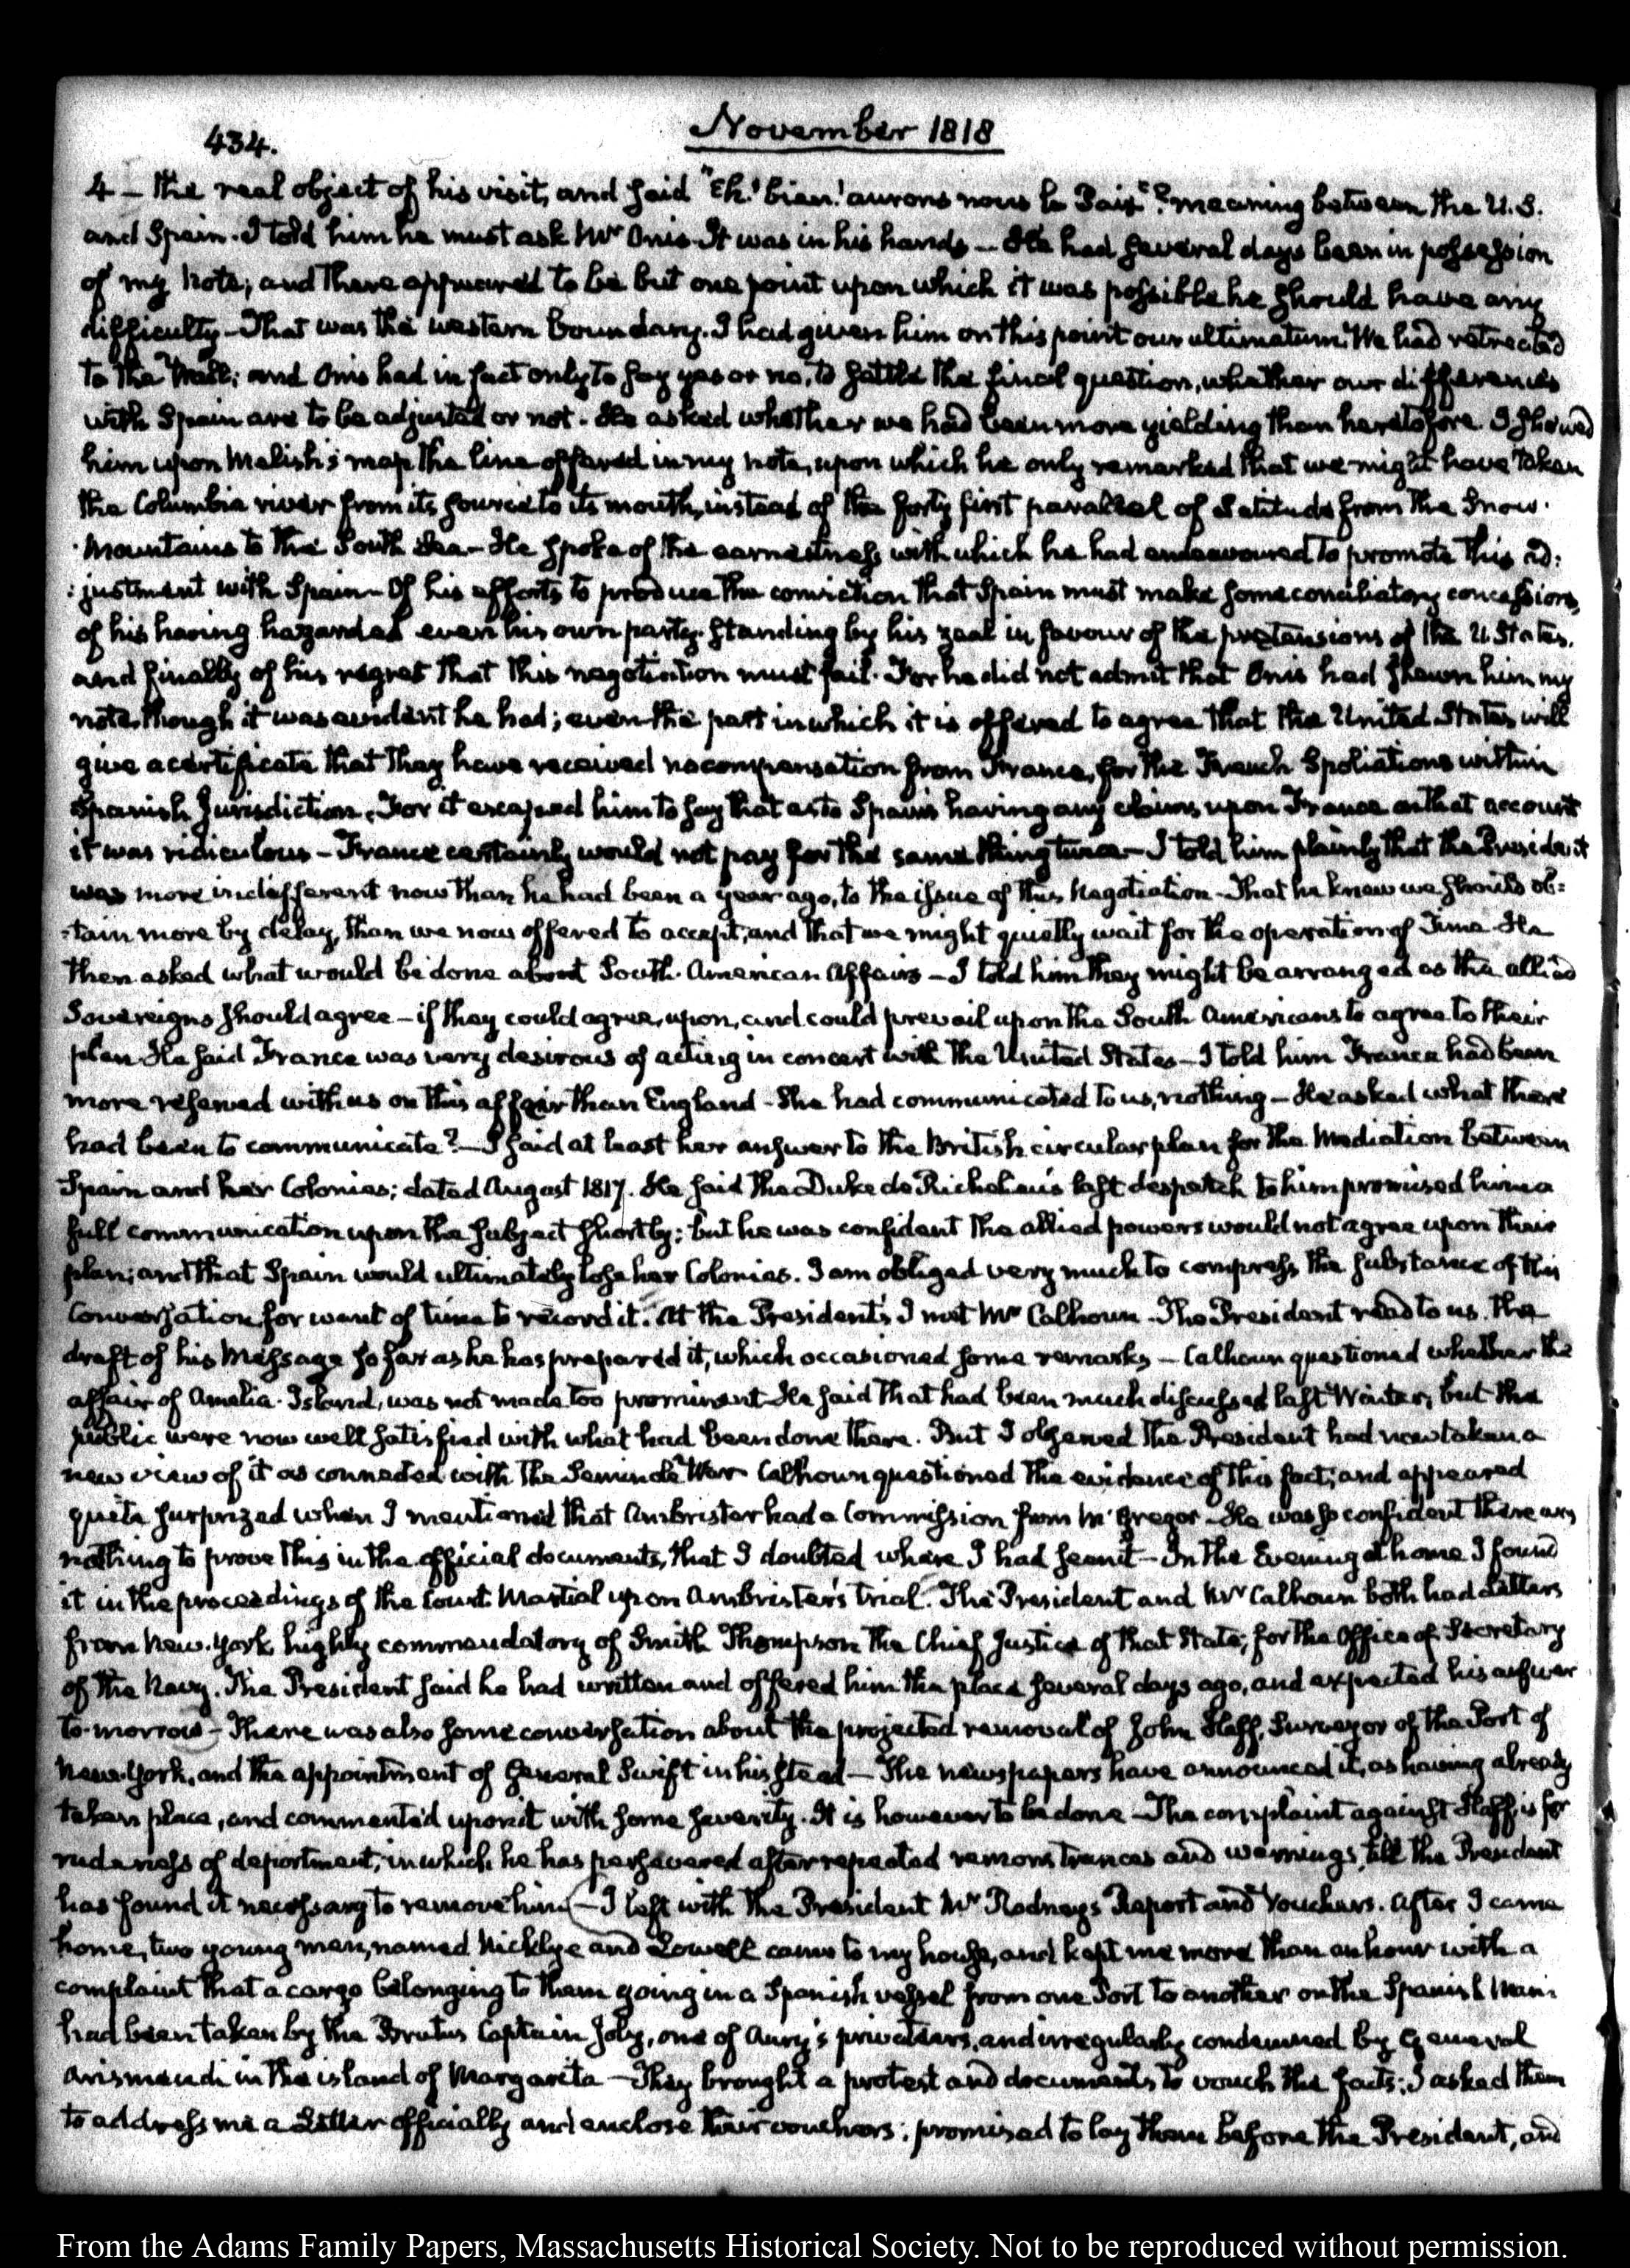 434.
November 1818
4 — the real object of his visit, and said "Eh! bien! aurons nous la Paix"? meaning between the U.S.
and Spain. I told him he must ask Mr Onis. It was in his hands — He had several days been in possession
of my Note; and there appeared to be but one point upon which it was possible he should have any
difficulty — That was the western boundary. I had given him on this point our ultimatum. We had retreated
to the Wall; and Onis had in fact only to say yes or no, to settle the final question, whether our differences
with Spain are to be adjusted or not. He asked whether we had been more yielding than heretofore. I shewed
him upon Melish's map the line offered in my note, upon which he only remarked that we might have taken
the Columbia river from its source to its mouth, instead of the forty first parallel of Latitude from the Snow-
-Mountains to the South Sea — He spoke of the earnestness with which he had endeavoured to promote this ad:
:justment with Spain — Of his efforts to produce the conviction that Spain must make some conciliatory concessions,
of his having hazarded even his own party-standing by his zeal in favour of the pretensions of the U. States,
and finally of his regret that this negotiation must fail. For he did not admit that Onis had shewn him my
note, though it was evident he had; even the part in which it is offered to agree that the United States will
give a certificate that they have received no compensation from France, for the French Spoliations within
Spanish Jurisdiction. For it escaped him to say that as to Spain's having any claims upon France on that account
it was ridiculous — France certainly would not pay for the same thing twice — I told him plainly that the President
was more indifferent now than he had been a year ago, to the issue of this Negotiation — That he knew we should ob:
:tain more by delay, than we now offered to accept, and that we might quietly wait for the operation of Time. He
then asked what would be done about South-American Affairs — I told him they might be arranged as the allied
Sovereigns should agree — if they could agree, upon, and could prevail upon the South Americans to agree to their
plan. He said France was very desirous of acting in concert with the United States — I told him France had been
more reserved with us on this affair than England — She had communicated to us, nothing — He asked what there
had been to communicate? — I said at least her answer to the British circular plan for the Mediation between
Spain and her Colonies; dated August 1817. He said the Duke de Richelieu's last despatch to him promised him a
full communication upon the subject shortly; but he was confident the allied powers would not agree upon their
plan; and that Spain would ultimately lose her Colonies. I am obliged very much to compress the substance of this
Conversation for want of time to record it. At the President's I met Mr Calhoun. The President read to us, the
draft of his Message so far as he has prepared it, which occasioned some remarks — Calhoun questioned whether the
affair of Amelia-Island, was not made too prominent. He said that had been much discussed last Winter, but the
public were now well satisfied with what had been done there. But I observed the President had now taken a
new view of it as connected with the Seminole War. Calhoun questioned the evidence of this fact; and appeared
quite surprized when I mentioned that Ambrister had a Commission from McGregor — He was so confident there was
nothing to prove this in the official documents, that I doubted where I had seen it — In the Evening at home I found
it in the proceedings of the Court-Martial upon Ambrister's trial. The President and Mr Calhoun both had Letters
from New-York, highly commendatory of Smith Thompson the Chief Justice of that State, for the Office of Secretary
of the Navy. The President said he had written and offered him the place several days ago, and expected his answer
to-morrow — There was also some conversation about the projected removal of John Haff, Surveyor of the Port of
New-York, and the appointment of General Swift in his stead — The newspapers have announced it, as having already
taken place, and commented upon it with some severity. It is however to be done — The complaint against Haff, is for
rudeness of deportment, in which he has persevered after repeated remonstrances and warnings, till the President
has found it necessary to remove him — I left with the President Mr Rodney's Report and Vouchers. After I came
home, two young men, named Nicklye and Lowell came to my house, and kept me more than an hour with a
complaint that a cargo belonging to them going in a Spanish vessel from one Port to another on the Spanish Main
had been taken by the Brutus Captain Joly, one of Aury's privateers, and irregularly condemned by General
Arismendi in the island of Margarita — They brought a protest and documents to vouch the facts; I asked them
to address me a Letter officially and enclose their vouchers; promised to lay them before the President, and
From the Adams Family Papers, Massachusetts Historical Society. Not to be reproduced without permission.